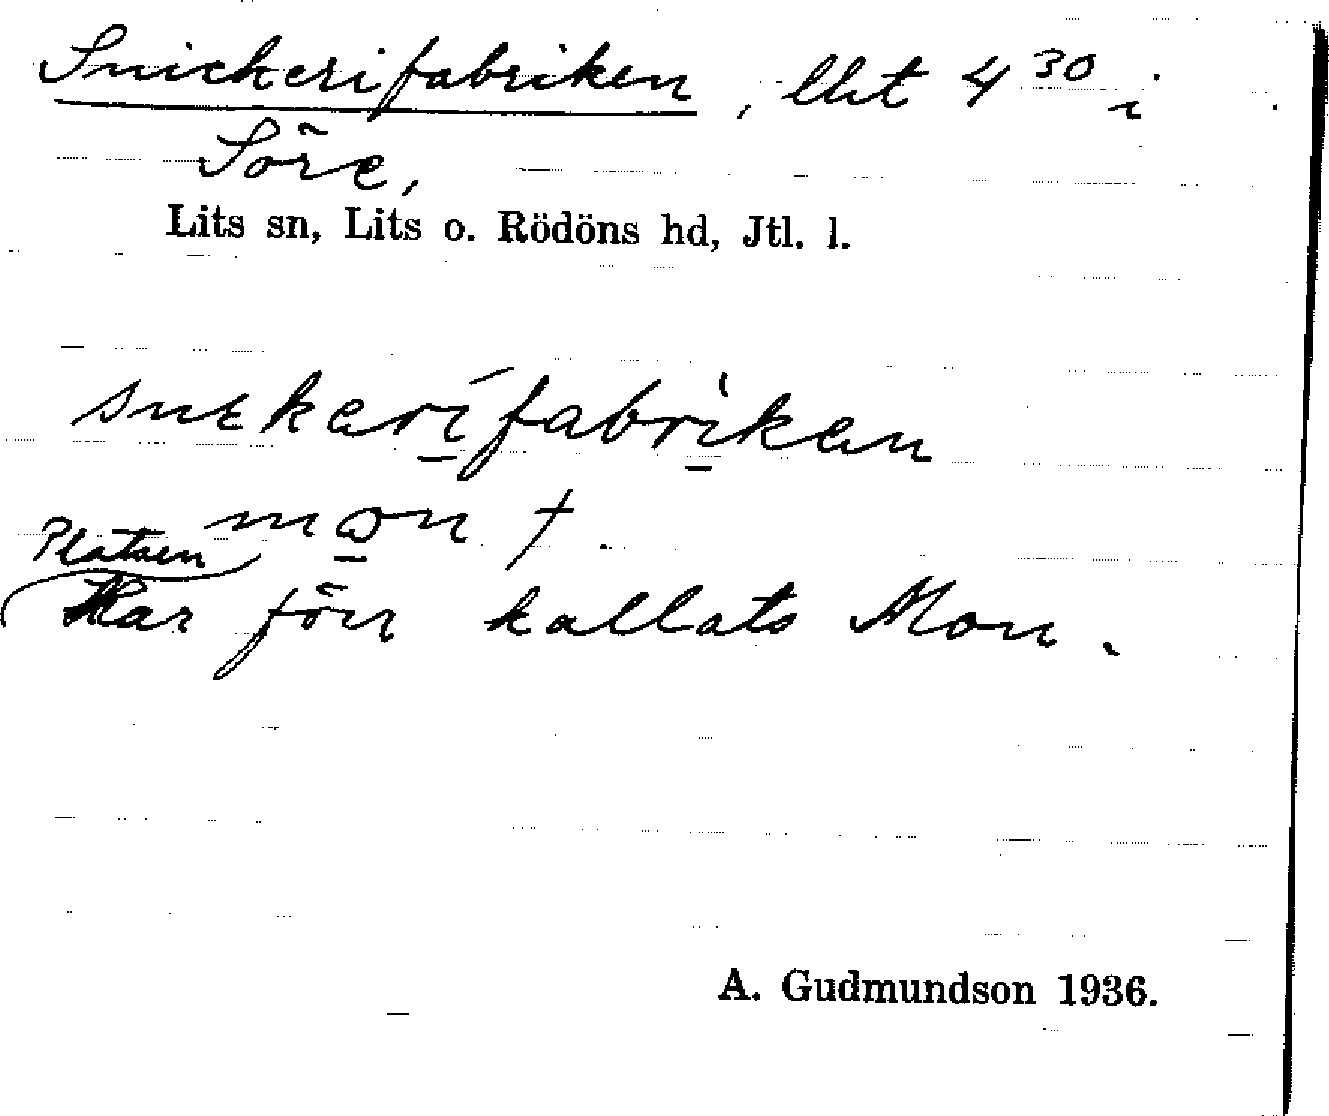 Snickerifabriken, lht 4³⁰ i
Söre,
Lits sn, Lits o. Rödöns hd, Jtl. l.
snɛkerífabrikan
mɑn †
Platsen
Har förr kallats Mon.
A. Gudmundson 1936.